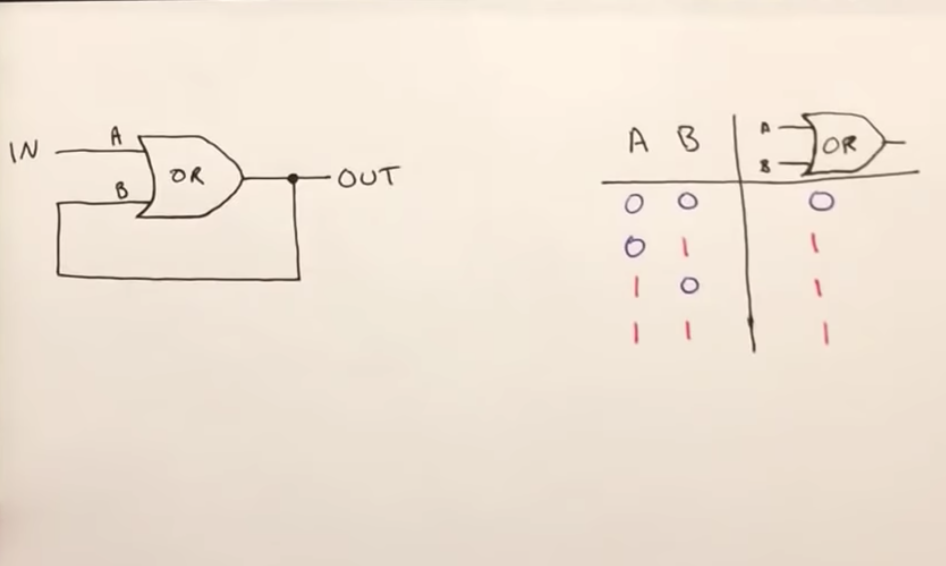 IN A
B OR OUT
A B A
B OR
0 0 0
0 1 1
1 0 1
1 1 1